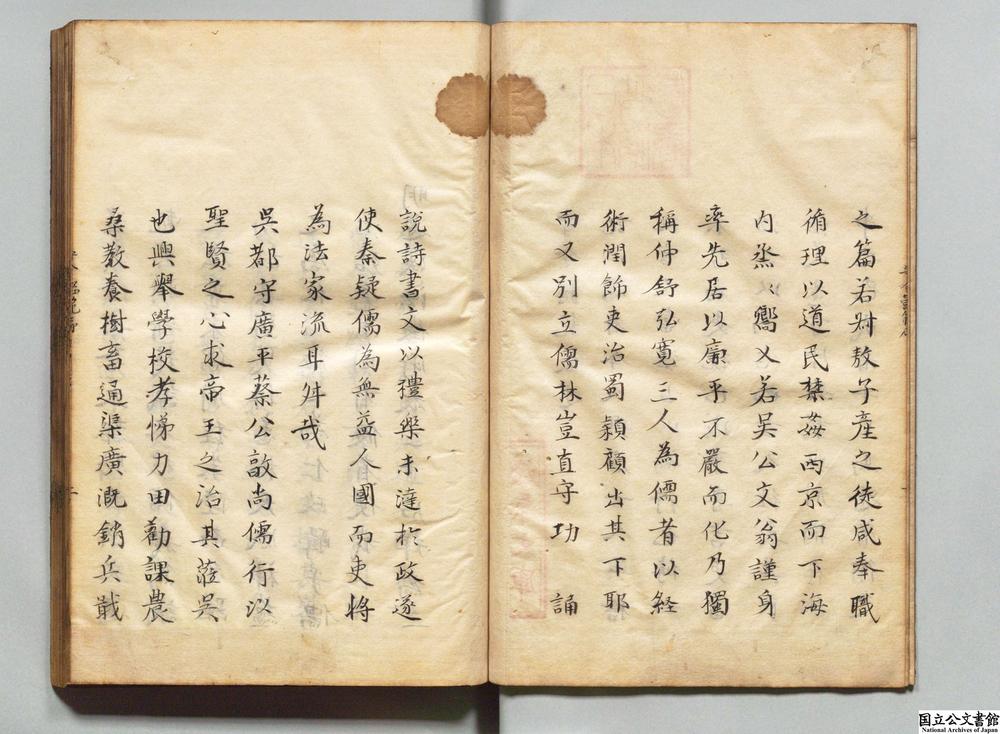 之篇若尉敖子產之徒咸奉職
循理以道民禁姦西京而下海
内烝烝嚮乂若吴公文翁謹身
率先居以廉平不嚴而化乃獨
稱仲舒弘寛三人為儒者以経
術潤飾吏治蜀潁顧出其下耶
而又別立儒林豈直守功 誦
說詩書文以禮樂未達於政遂
使秦疑儒為無益人國而吏將
為法家流耳舛哉
吳郡守廣平蔡公敭尚儒行以
聖賢之心求帝王之治其蒞吳
也興舉學校孝悌力田勸課農
桑教養樹畜通渠廣溉銷兵戢
国立公文書館
National Archives of Japan